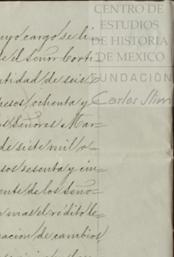 CENTRO DE
ESTUDIOS
DE HISTORIA
DE MEXICO
FUNDACIÓN
Carlos Slim
cuyo cargo se li
el Señor Corti
ntidad de seis
pesos, ochenta y
los Señores Mar
de siete mil o
sos sesenta y cin
ente de los Seño
mas el rédito le
nacion de cambios